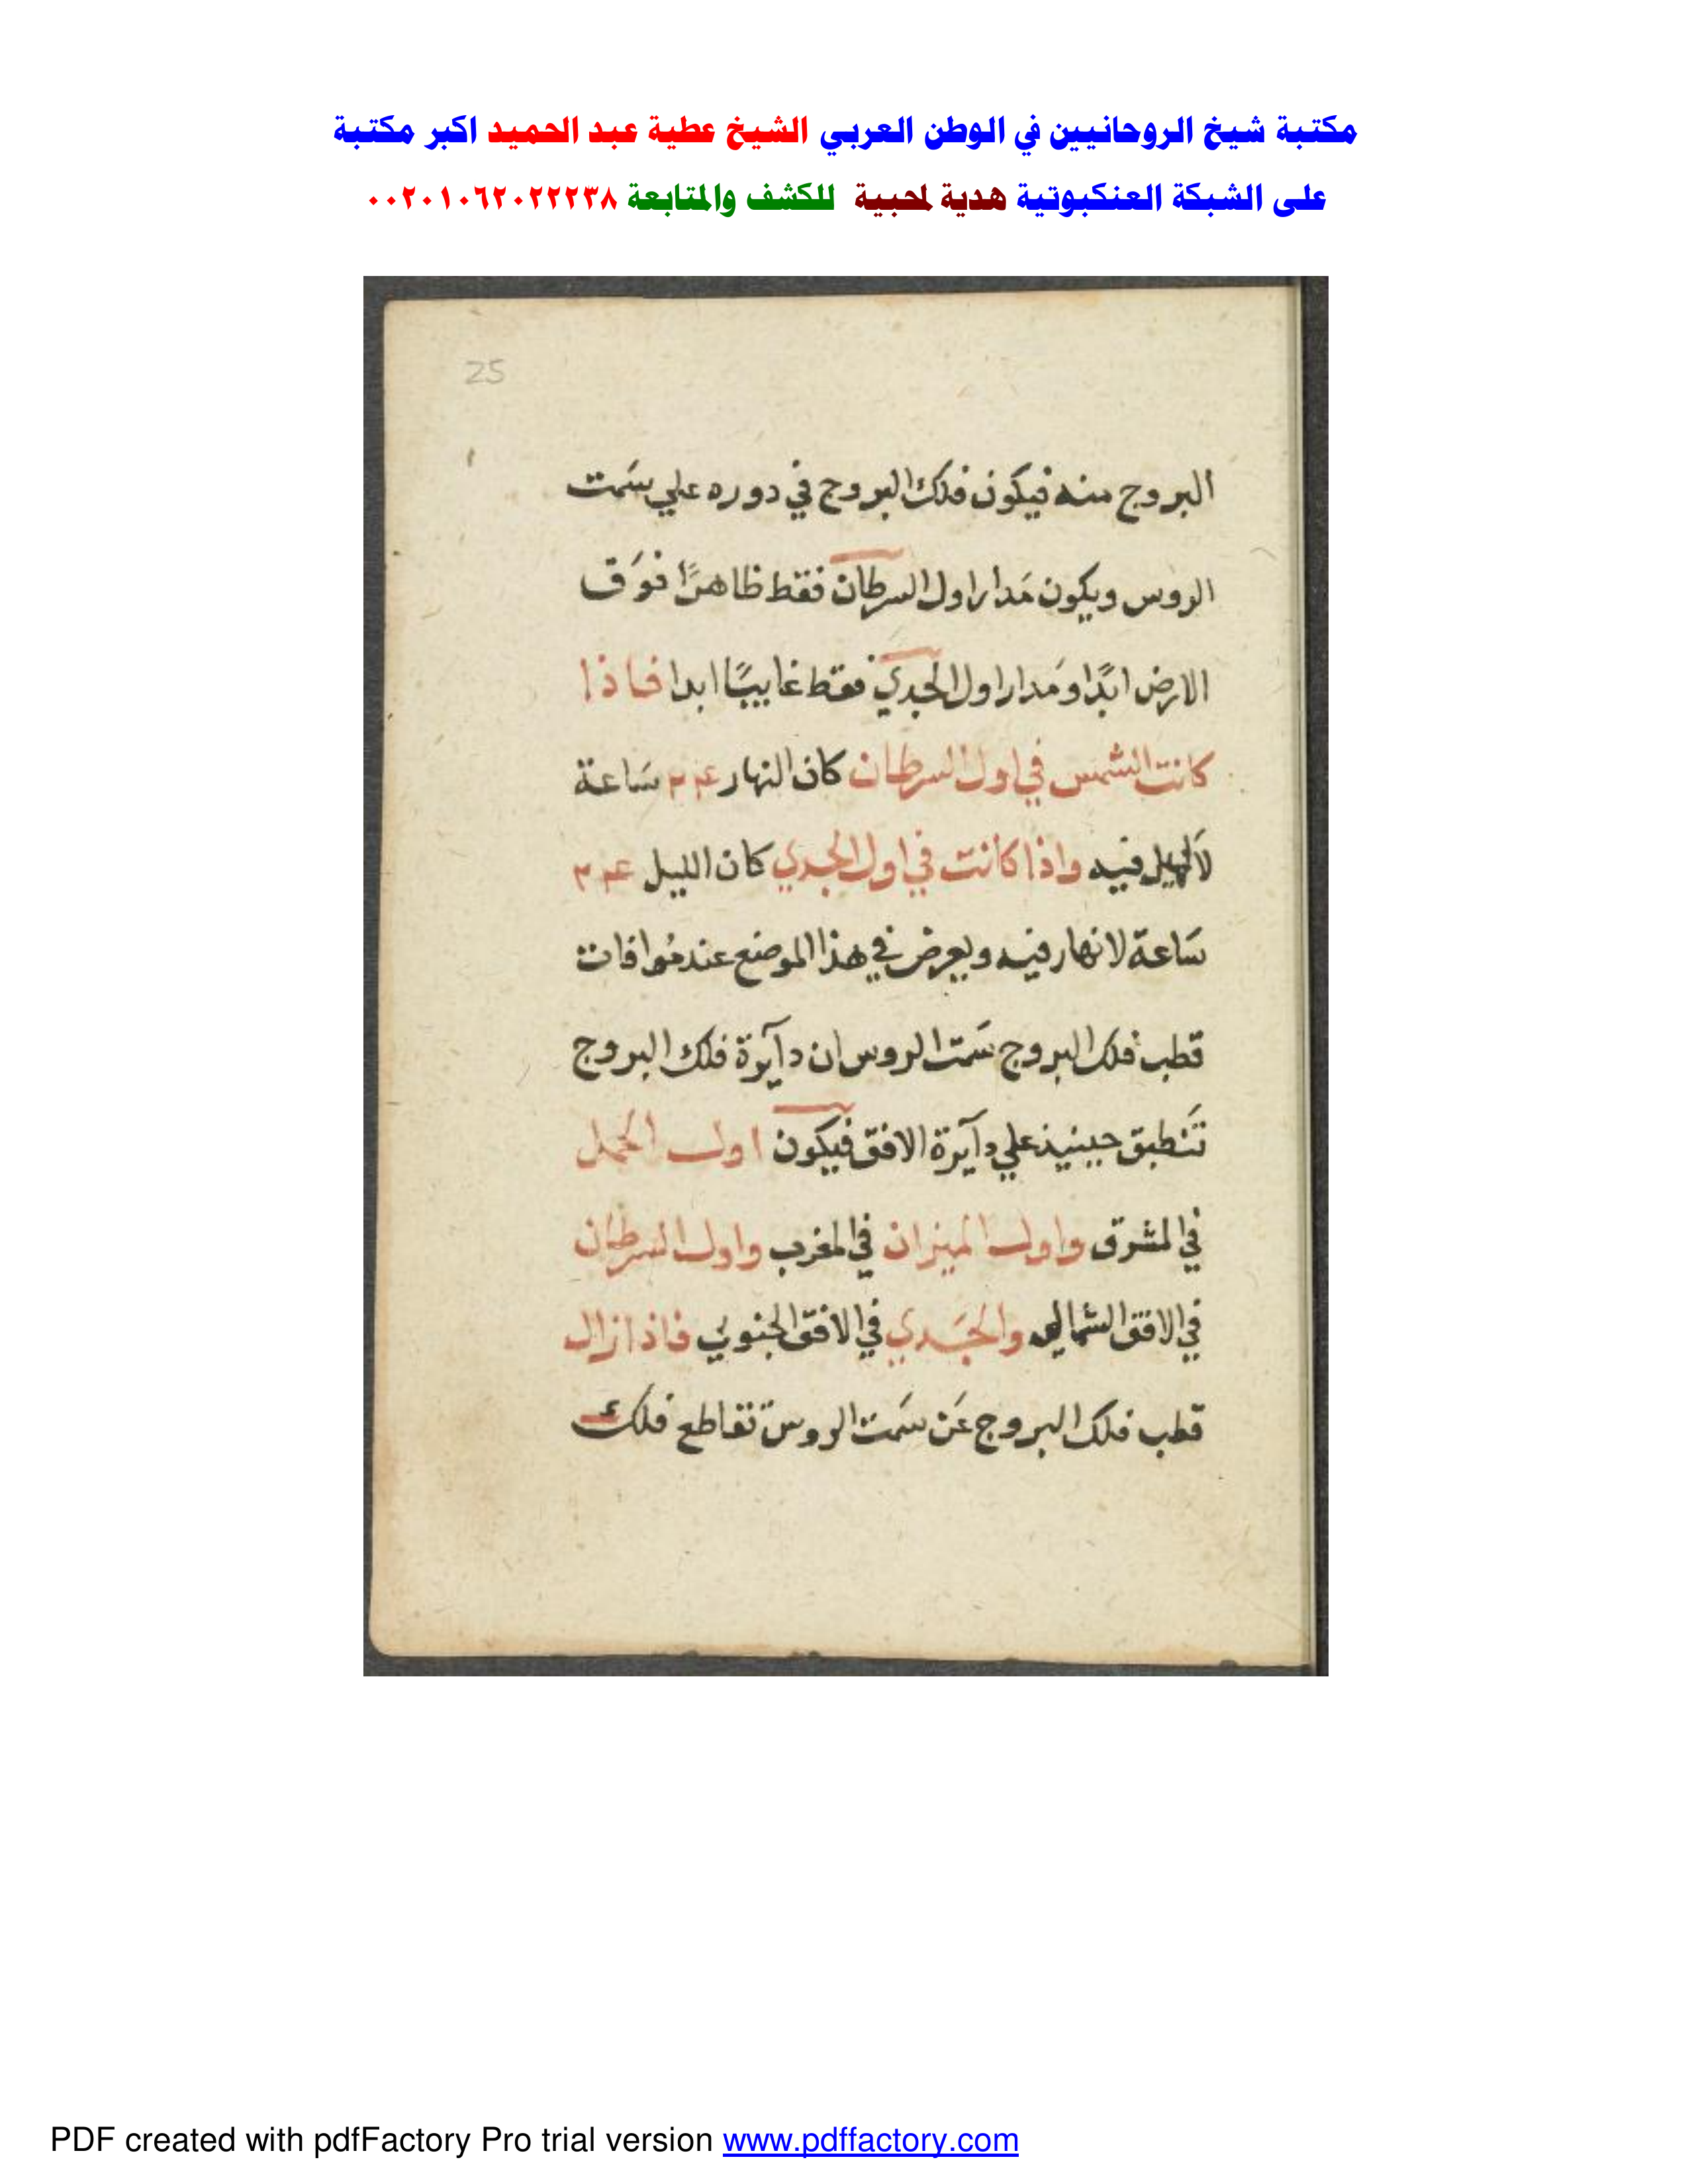 مكتبة شيخ الروحانيين في الوطن العربي الشيخ عطية عبد الحميد اكبر مكتبة
على الشبكة العنكبوتية هدية لمحبية للكشف والمتابعة ٠٠٢٠١٠٦٢٠٢٢٢٣٨
25
البروج منه فيكون فلك البروج في دوره علي سَمت
الروس ويكون مَدار اول السرطان فقط ظاهرًا فوَق
الارض ابدًا ومَدار اول الجدي فقط غايبًا ابدا فاذا
كانت الشمس في اول السرطان كان النهار ٢٤ سَاعة
لا ليل فيه واذا كانت في اول الجدي كان الليل ٢٤
سَاعة لا نهار فيه ويعرض في هذا الموضع عند مُوافات
قطب فلك البروج سَمت الروس ان دآيرة فلك البروج
تَنطبق حينيذ علي دآيرة الافق فيكون اول الحمل
في المشرق واول الميزان في المغرب واول السرطان
في الافق الشمالي والجَدي في الافق الجنوبي فاذا زال
قطب فلك البروج عَن سَمت الروس تقاطع فلك
PDF created with pdfFactory Pro trial version www.pdffactory.com